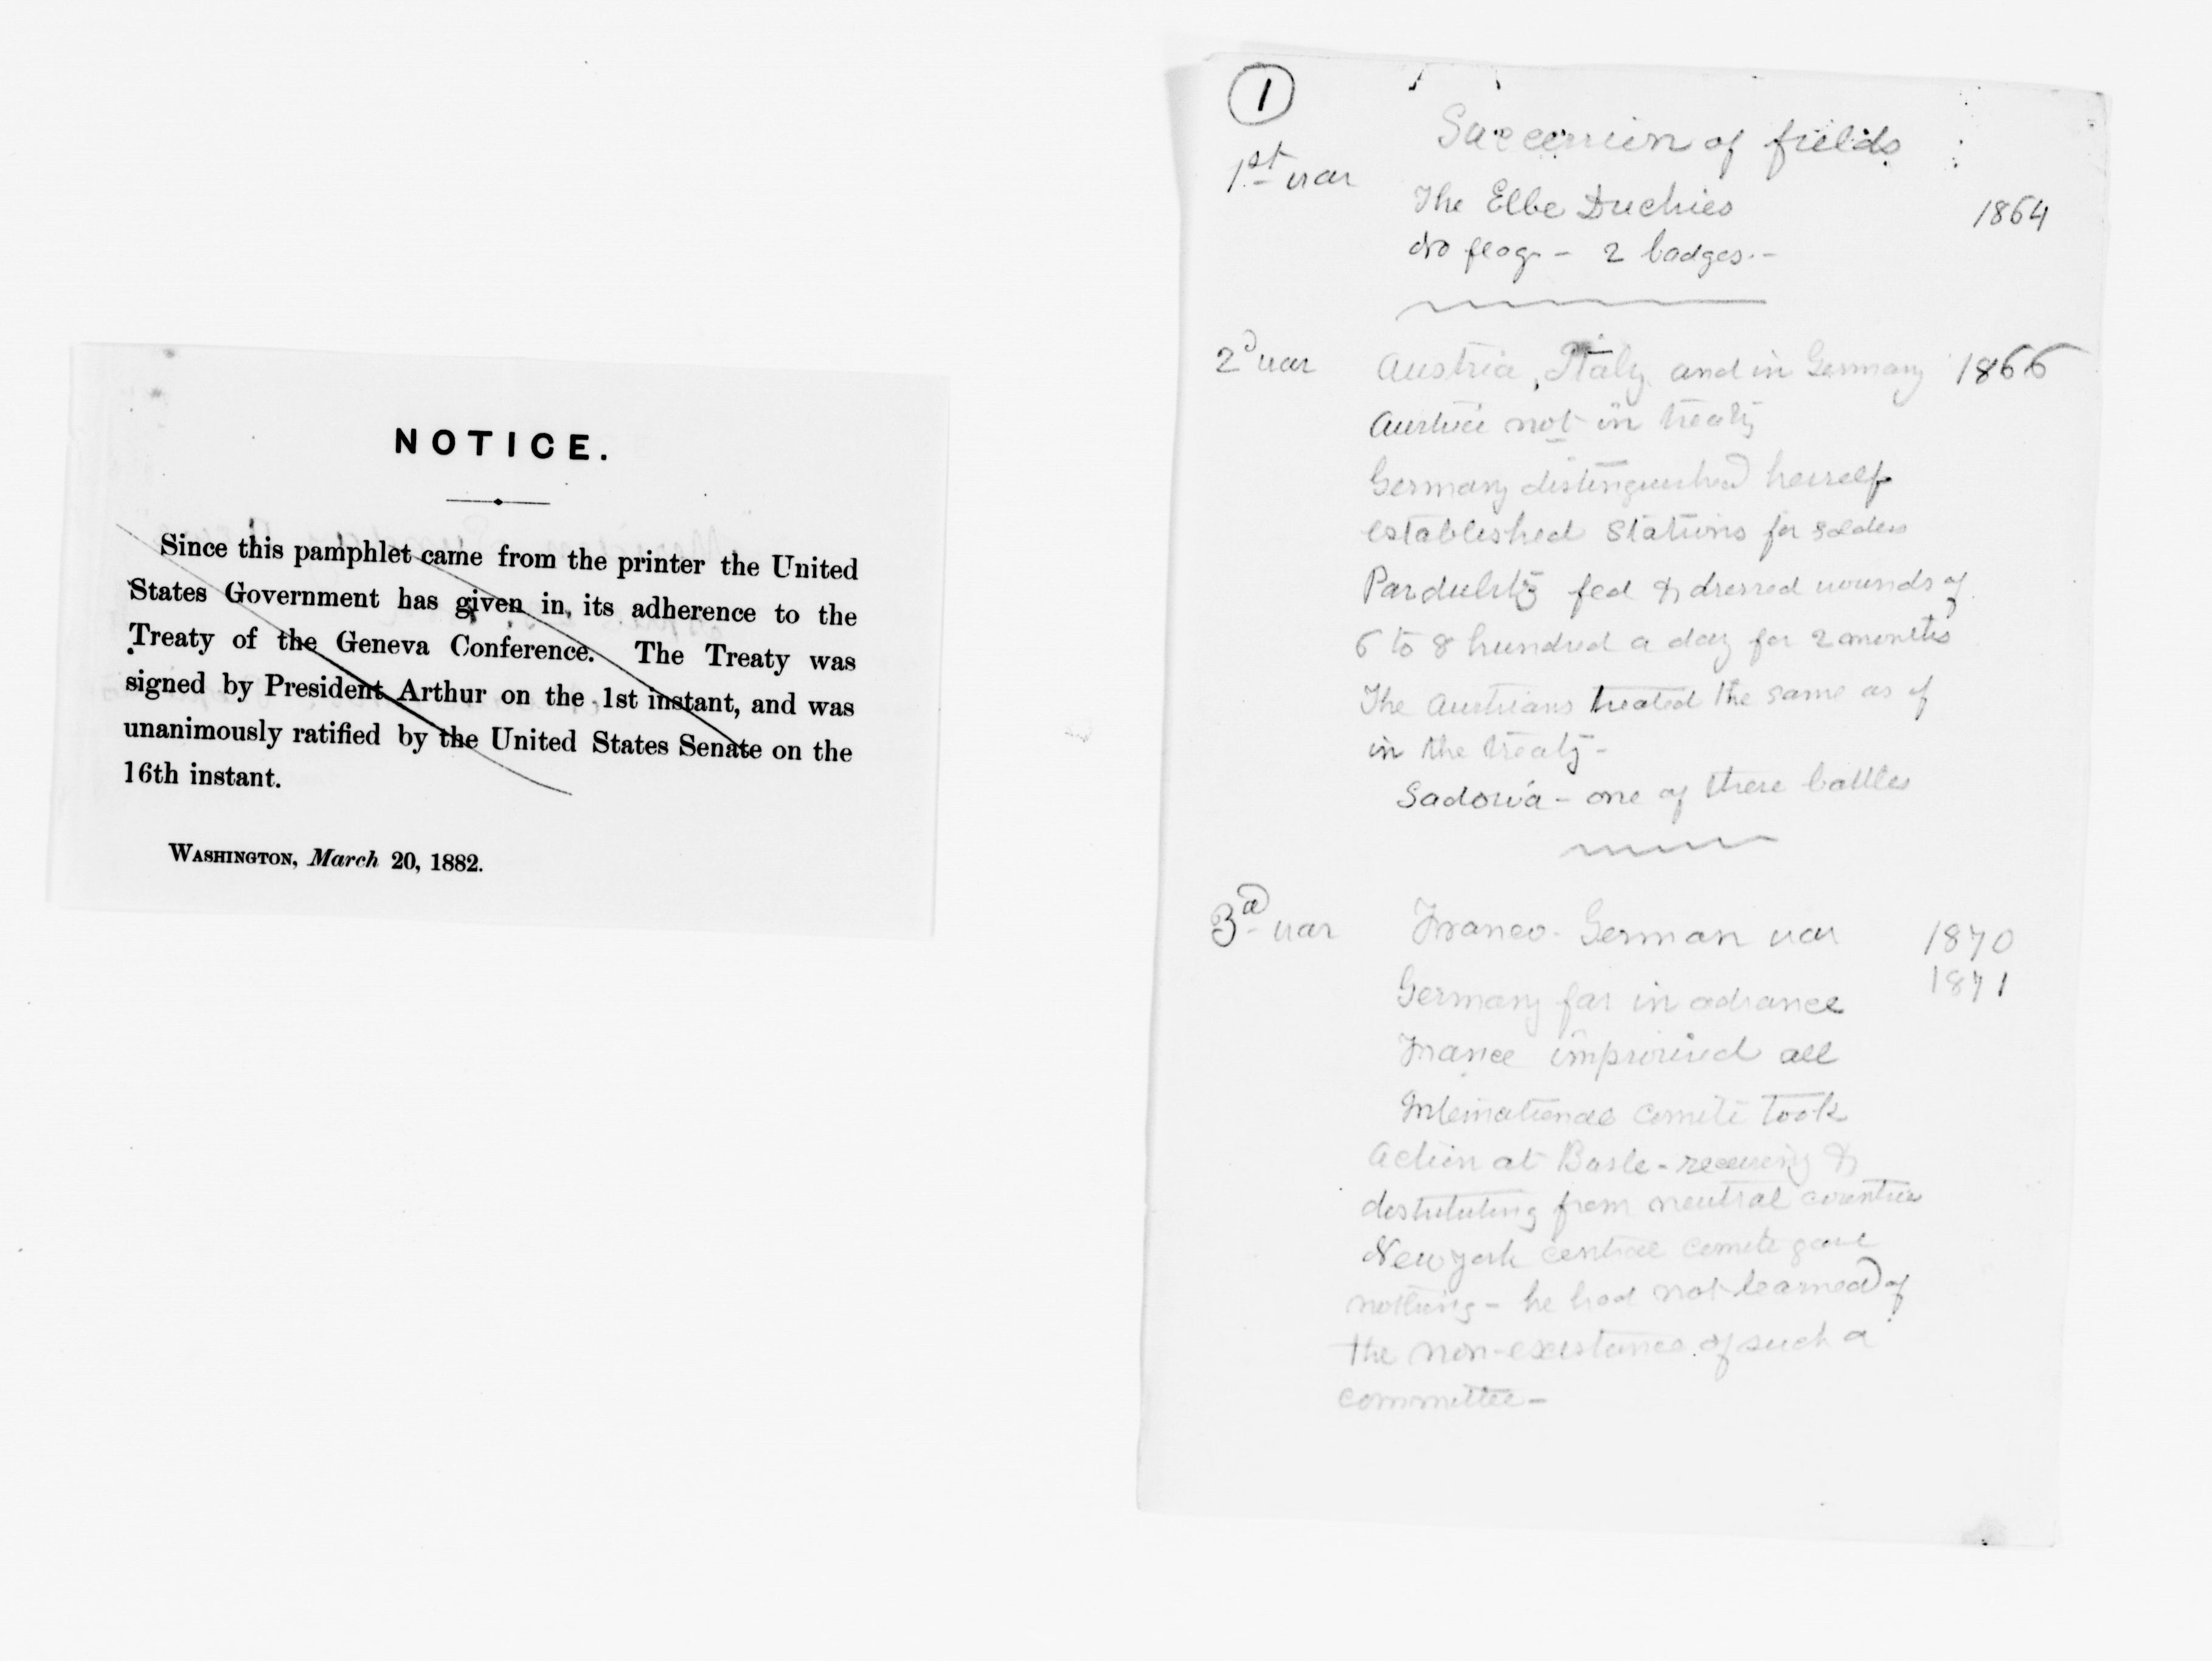 NOTICE.
Since this pamphlet came from the printer the United
States Government has given in its adherence to the
Treaty of the Geneva Conference. The Treaty was
signed by President Arthur on the 1st instant, and was
unanimously ratified by the United States Senate on the
16th instant.
WASHINGTON, March 20, 1882.
1
Succession of fields
1st war
The Elbe Duchies 1864
No flag - 2 badges. -
2d war Austria, Italy and in Germany 1866
Austria not in treaty
Germany distinguished herself
established stations for
Pardubitz fed & dressed wounds of
6 to 8 hundred a day for 2 months
The Austrians treated the same as if
in the treaty -
Sadowa - one of these battles
3d war Franco-German war 1870
1871
Germany far in advance
France improvised all
Internationale comite took
action at Basle - receiving &
from neutral countries
New York central comite gave
nothing - he had not learned of
the non-existance of such a
committee -